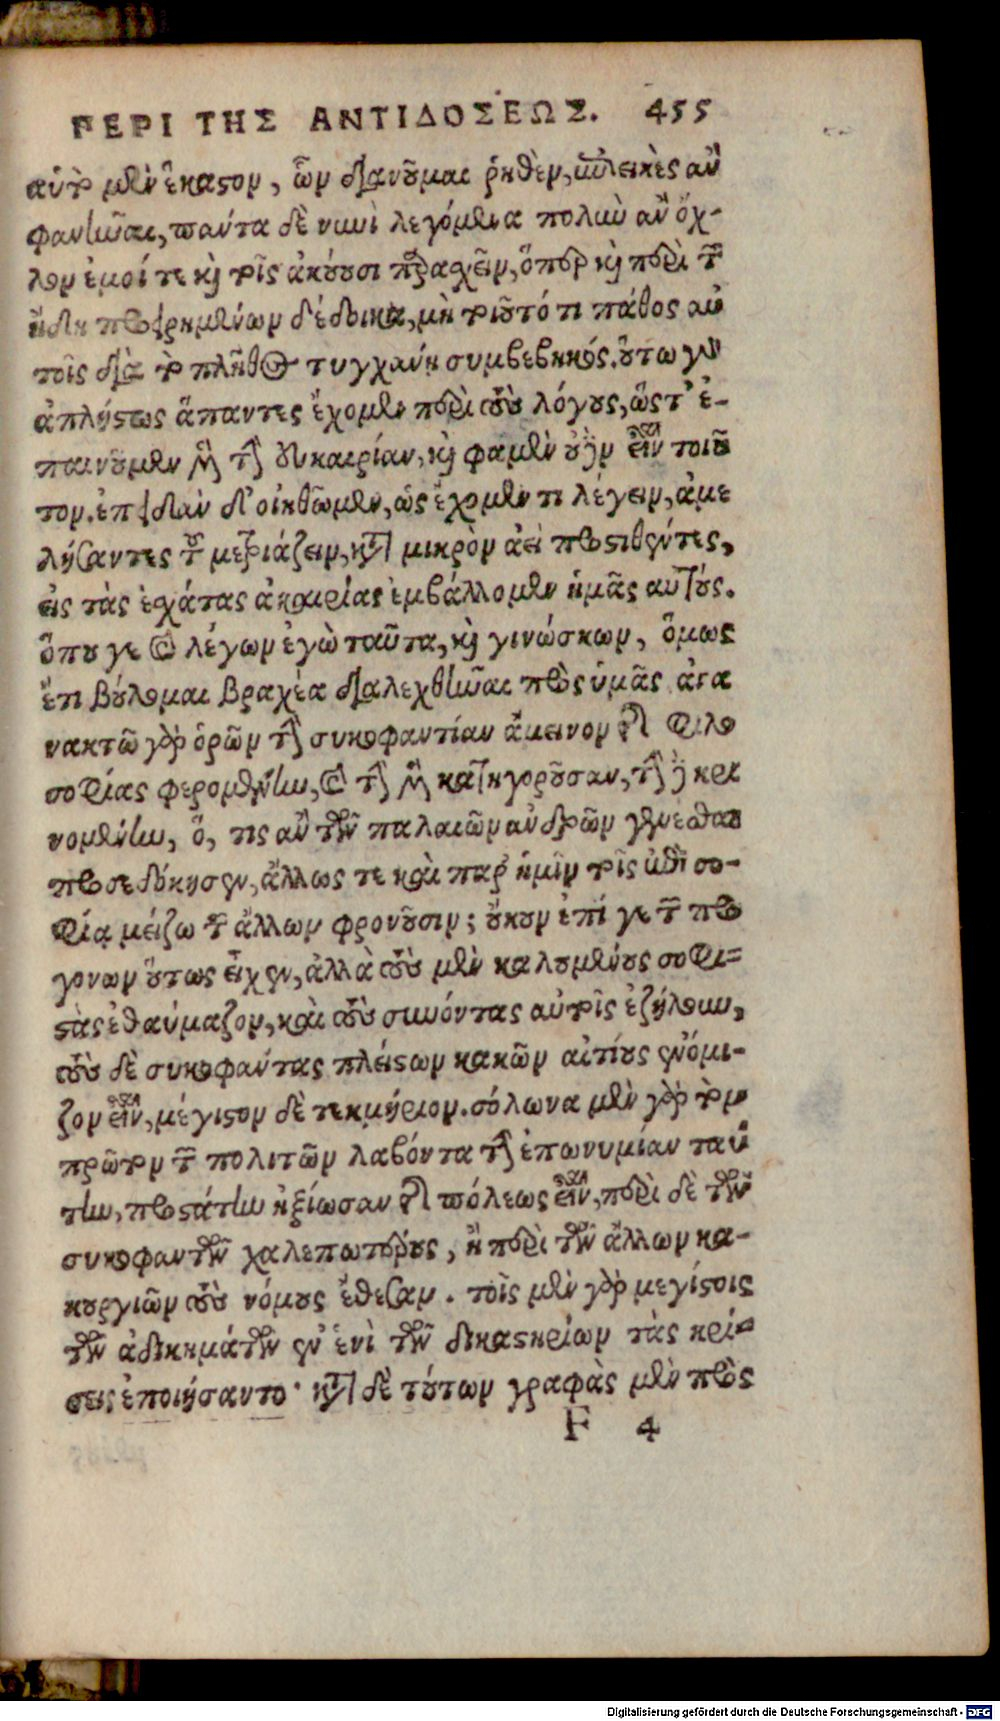 ΠΕΡΙ ΤΗΣ ΑΝΤΙΔΟΣΕΩΣ. 455
αὐτὸ μὲν ἕκαστον, ὧν διανοῦμαι ῥηθὲν, ἐπιεικὲς ἂν
φανῆναι, πάντα δὲ νυνὶ λεγόμενα πολὺν ἂν ὄχ-
λον ἐμοί τε καὶ τοῖς ἀκούουσι παραχεῖν, ὅπερ καὶ περὶ τῶν
ἤδη προειρημένων δέδοικα, μὴ τοιοῦτό τι πάθος αὐ
τοῖς διὰ τὸ πλῆθος τυγχάνῃ συμβεβηκός. οὕτω γὰρ
ἀπλήστως ἅπαντες ἔχομεν περὶ τοὺς λόγους, ὥστ' ἐ-
παινοῦμεν μὲν τὴν εὐκαιρίαν, καὶ φαμὲν οὐδὲν εἶναι τοιοῦ
τον. ἐπειδὰν δ' οἰηθῶμεν, ὡς ἔχομέν τι λέγειν, ἀμε
λήσαντες τοῦ μετριάζειν, κατὰ μικρὸν ἀεὶ προστιθέντες,
εἰς τὰς ἐσχάτας ἀκαιρίας ἐμβάλλομεν ἡμᾶς αὐτούς.
ὅπου γε καὶ λέγων ἐγὼ ταῦτα, καὶ γινώσκων, ὅμως
ἔτι βούλομαι βραχέα διαλεχθῆναι πρὸς ὑμᾶς. ἀγα
νακτῶ γὰρ ὁρῶν τὴν συκοφαντίαν ἄμεινον τῆς φιλο
σοφίας φερομένην, καὶ τὴν μὲν κατηγοροῦσαν, τὴν δὲ κρι
νομένην, ὅ, τις ἂν τῶν παλαιῶν ἀνδρῶν γενέσθαι
προσεδόκησεν, ἄλλως τε καὶ παρ' ἡμῖν τοῖς ἐπὶ σο-
φίᾳ μείζω τῶν ἄλλων φρονοῦσιν; οὔκουν ἐπί γε τῶν προ
γόνων οὕτως εἶχεν, ἀλλὰ τοὺς μὲν καλουμένους σοφι-
στὰς ἐθαύμαζον, καὶ τοὺς συνόντας αὐτοῖς ἐζήλουν,
τοὺς δὲ συκοφάντας πλείστων κακῶν αἰτίους ἐνόμι-
ζον εἶναι, μέγιστον δὲ τεκμήριον. σόλωνα μὲν γὰρ τὸν
πρῶτον τῶν πολιτῶν λαβόντα τὴν ἐπωνυμίαν ταύ
την, προστάτην ἠξίωσαν τῆς πόλεως εἶναι, περὶ δὲ τῶν
συκοφαντῶν χαλεπωτέρους, ἢ περὶ τῶν ἄλλων κα-
κουργιῶν τοὺς νόμους ἔθεσαν. τοῖς μὲν γὰρ μεγίστοις
τῶν ἀδικημάτων ἐν ἑνὶ τῶν δικαστηρίων τὰς κρί-
σεις ἐποιήσαντο· κατὰ δὲ τούτων γραφὰς μὲν πρὸς
F 4
Digitalisierung gefördert durch die Deutsche Forschungsgemeinschaft - DFG